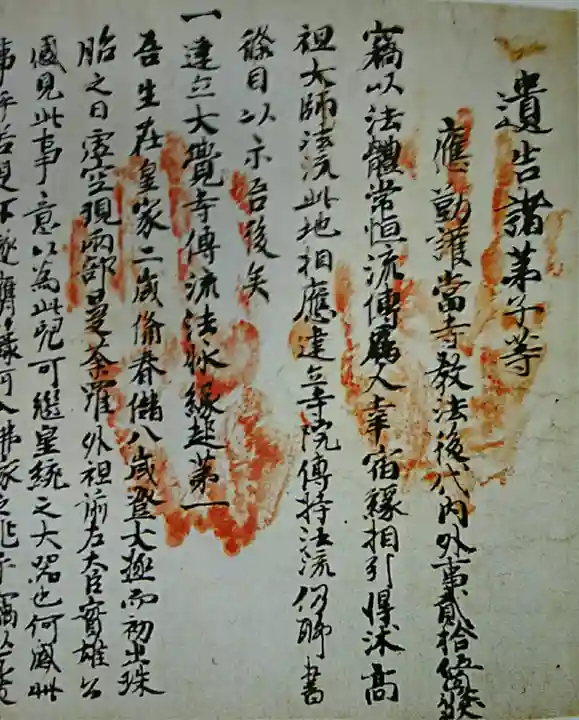 遺告諸弟子等
應勤護當寺教法後代內外事貳拾伍箇條
竊以法體常恒流傳屬人幸宿緣相引得沐高
祖大師法流此地相應建立寺院傳持法流仍聊書
條目以示吾後矣
一建立大覺寺傳流法水緣起第一
吾生在皇家二歲備春儲八歲登大極而初出珠
胎之日虛空現兩部曼荼羅外祖前左大臣實雄公
感見此事意以為此兒可繼皇統之大器也何感此